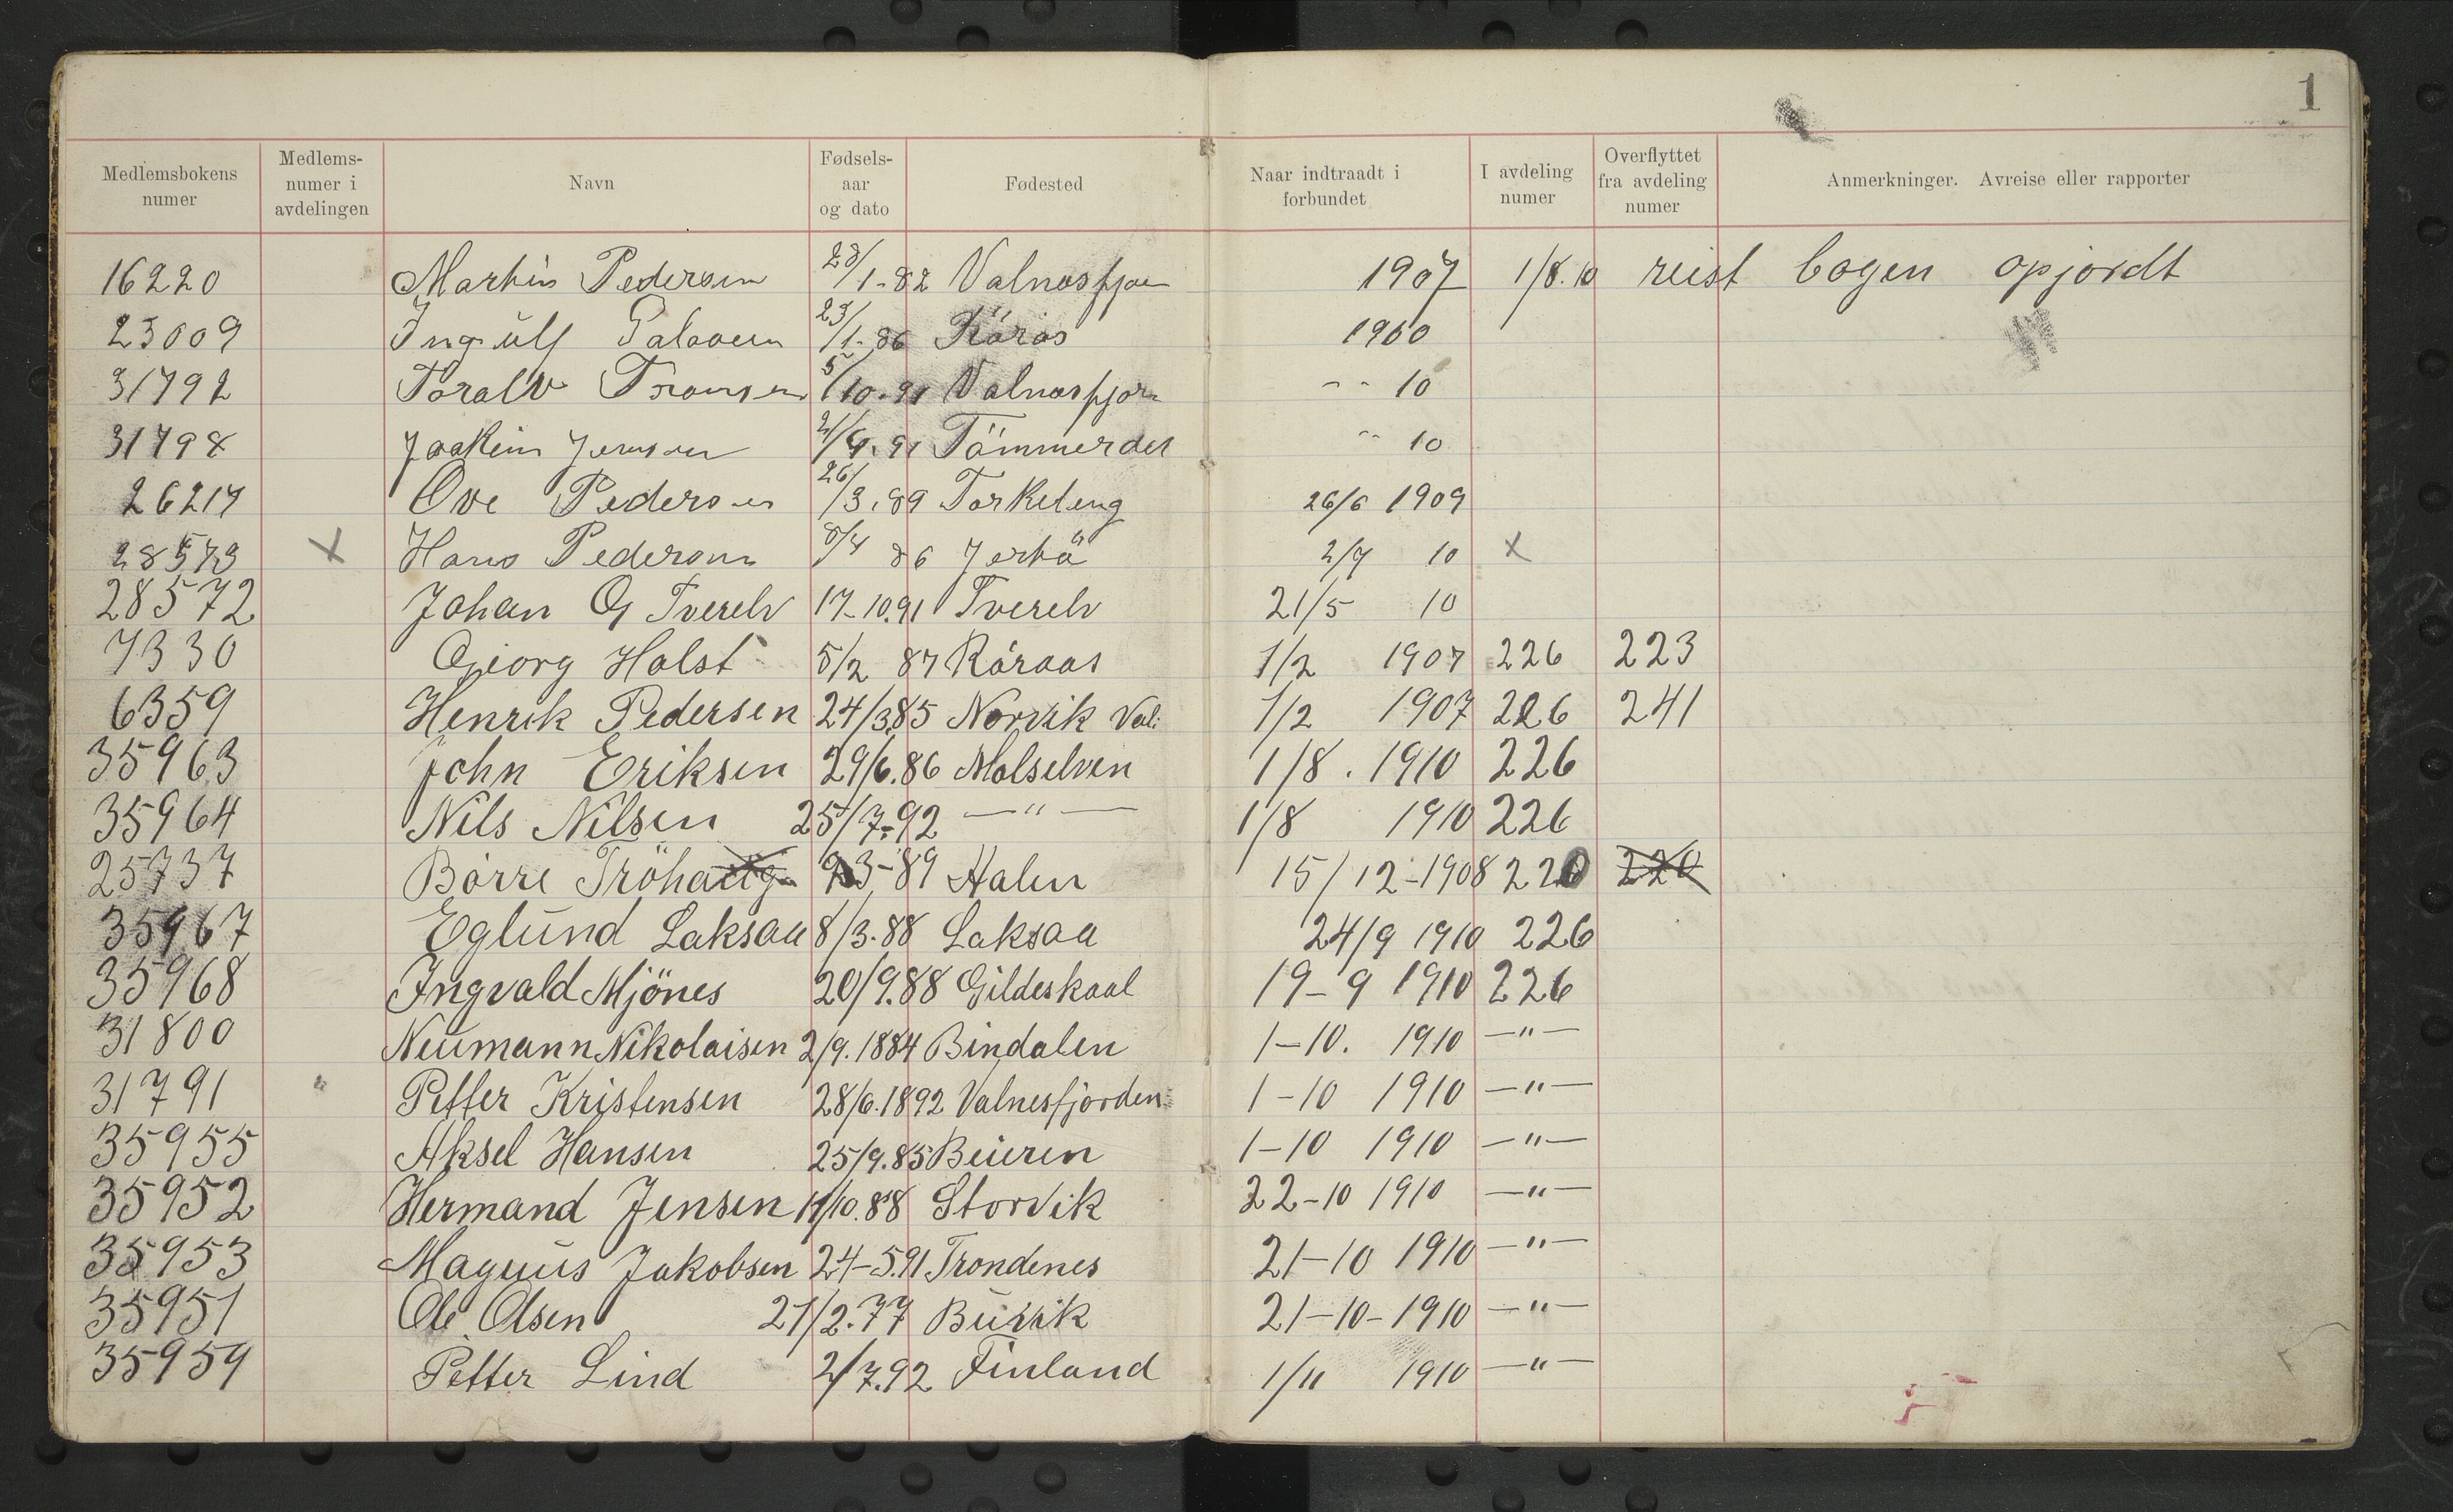 1
Medlemsbokens numer | Medlems- numer i avdelingen | Navn | Fødsels- aar og dato | Fødested | Naar indtraadt i forbundet | I avdeling numer | Overflyttet fra avdeling numer | Anmerkninger. Avreise eller rapporter
16220 Martin Pedersen 28/1-82 1907 1/8.10 reist bogen opjordt
23009 Ingulf 23/1-86 Röros 1910
31792 Toralv 5/10.91 -- 10
31798 Joakim Jensen Tömmerdal -- 10
26217 Ove Pedersen 26/3.89 Torkeleng 26/6 1909
28573 x Hans Pedersen 8/4 86 2/7 10 x
28572 Johan G Tverelv 17-10.91 Tverelv 21/5 10
7330 Georg Holst 5/2 87 Röraas 1/2 1907 226 223
6359 Henrik Pedersen 24/3.85 Norvik Val: 1/2 1907 226 241
35963 John Eriksen 29/6.86 Molselven 1/8. 1910 226
35964 Nils Nilsen 25/7-92 —"— 1/8 1910 226
25737 Börre 89 Halen 15/12-1908 220 220
35967 Eglund Laksaa 8/3.88 Laksaa 24/9 1910 226
35968 Ingvald Mjönes 20/9.88 Gildeskaal 19-9 1910 226
31800 Neumann Nikolaisen 2/9.1884 Bindalen 1-10. 1910 —"—
31791 Petter Kristensen 28/6.1892 Valnesfjorden 1-10 1910 —"—
35955 Aksel Hansen 25/9.85 Beieren 1-10 1910 —"—
35952 Hermand Jensen 10.88 Storvik 22-10 1910 —"—
35953 Magnus Jakobsen 24-5.91 Trondenes 21-10 1910 —"—
35951 Ole Olsen 21/2.77 Buvik 21-10-1910 —"—
35959 Petter Lind 2/7.92 Finland 1/11 1910 —"—